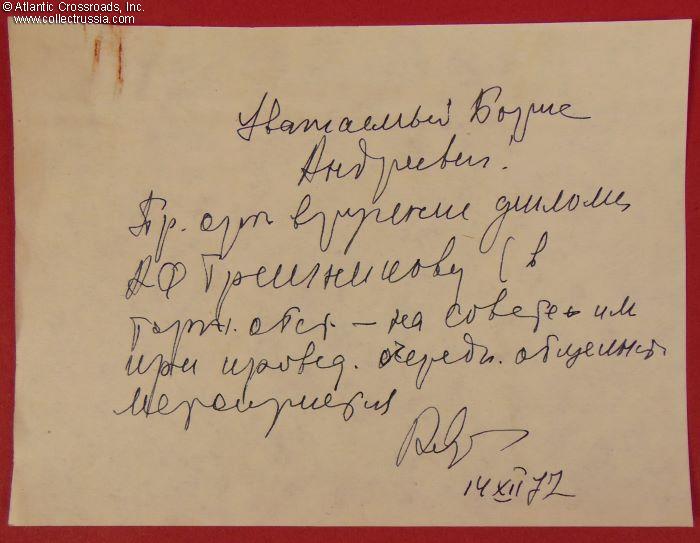 © Atlantic Crossroads, Inc.
www.collectrussia.com
Уважаемый Борис
Андреевич!
Пр. орг. вручение диплома
АФ Трешникову (в
торж. обст. – на совете или
при провед. очередн. общеинст.
мероприятия
14 XII 72